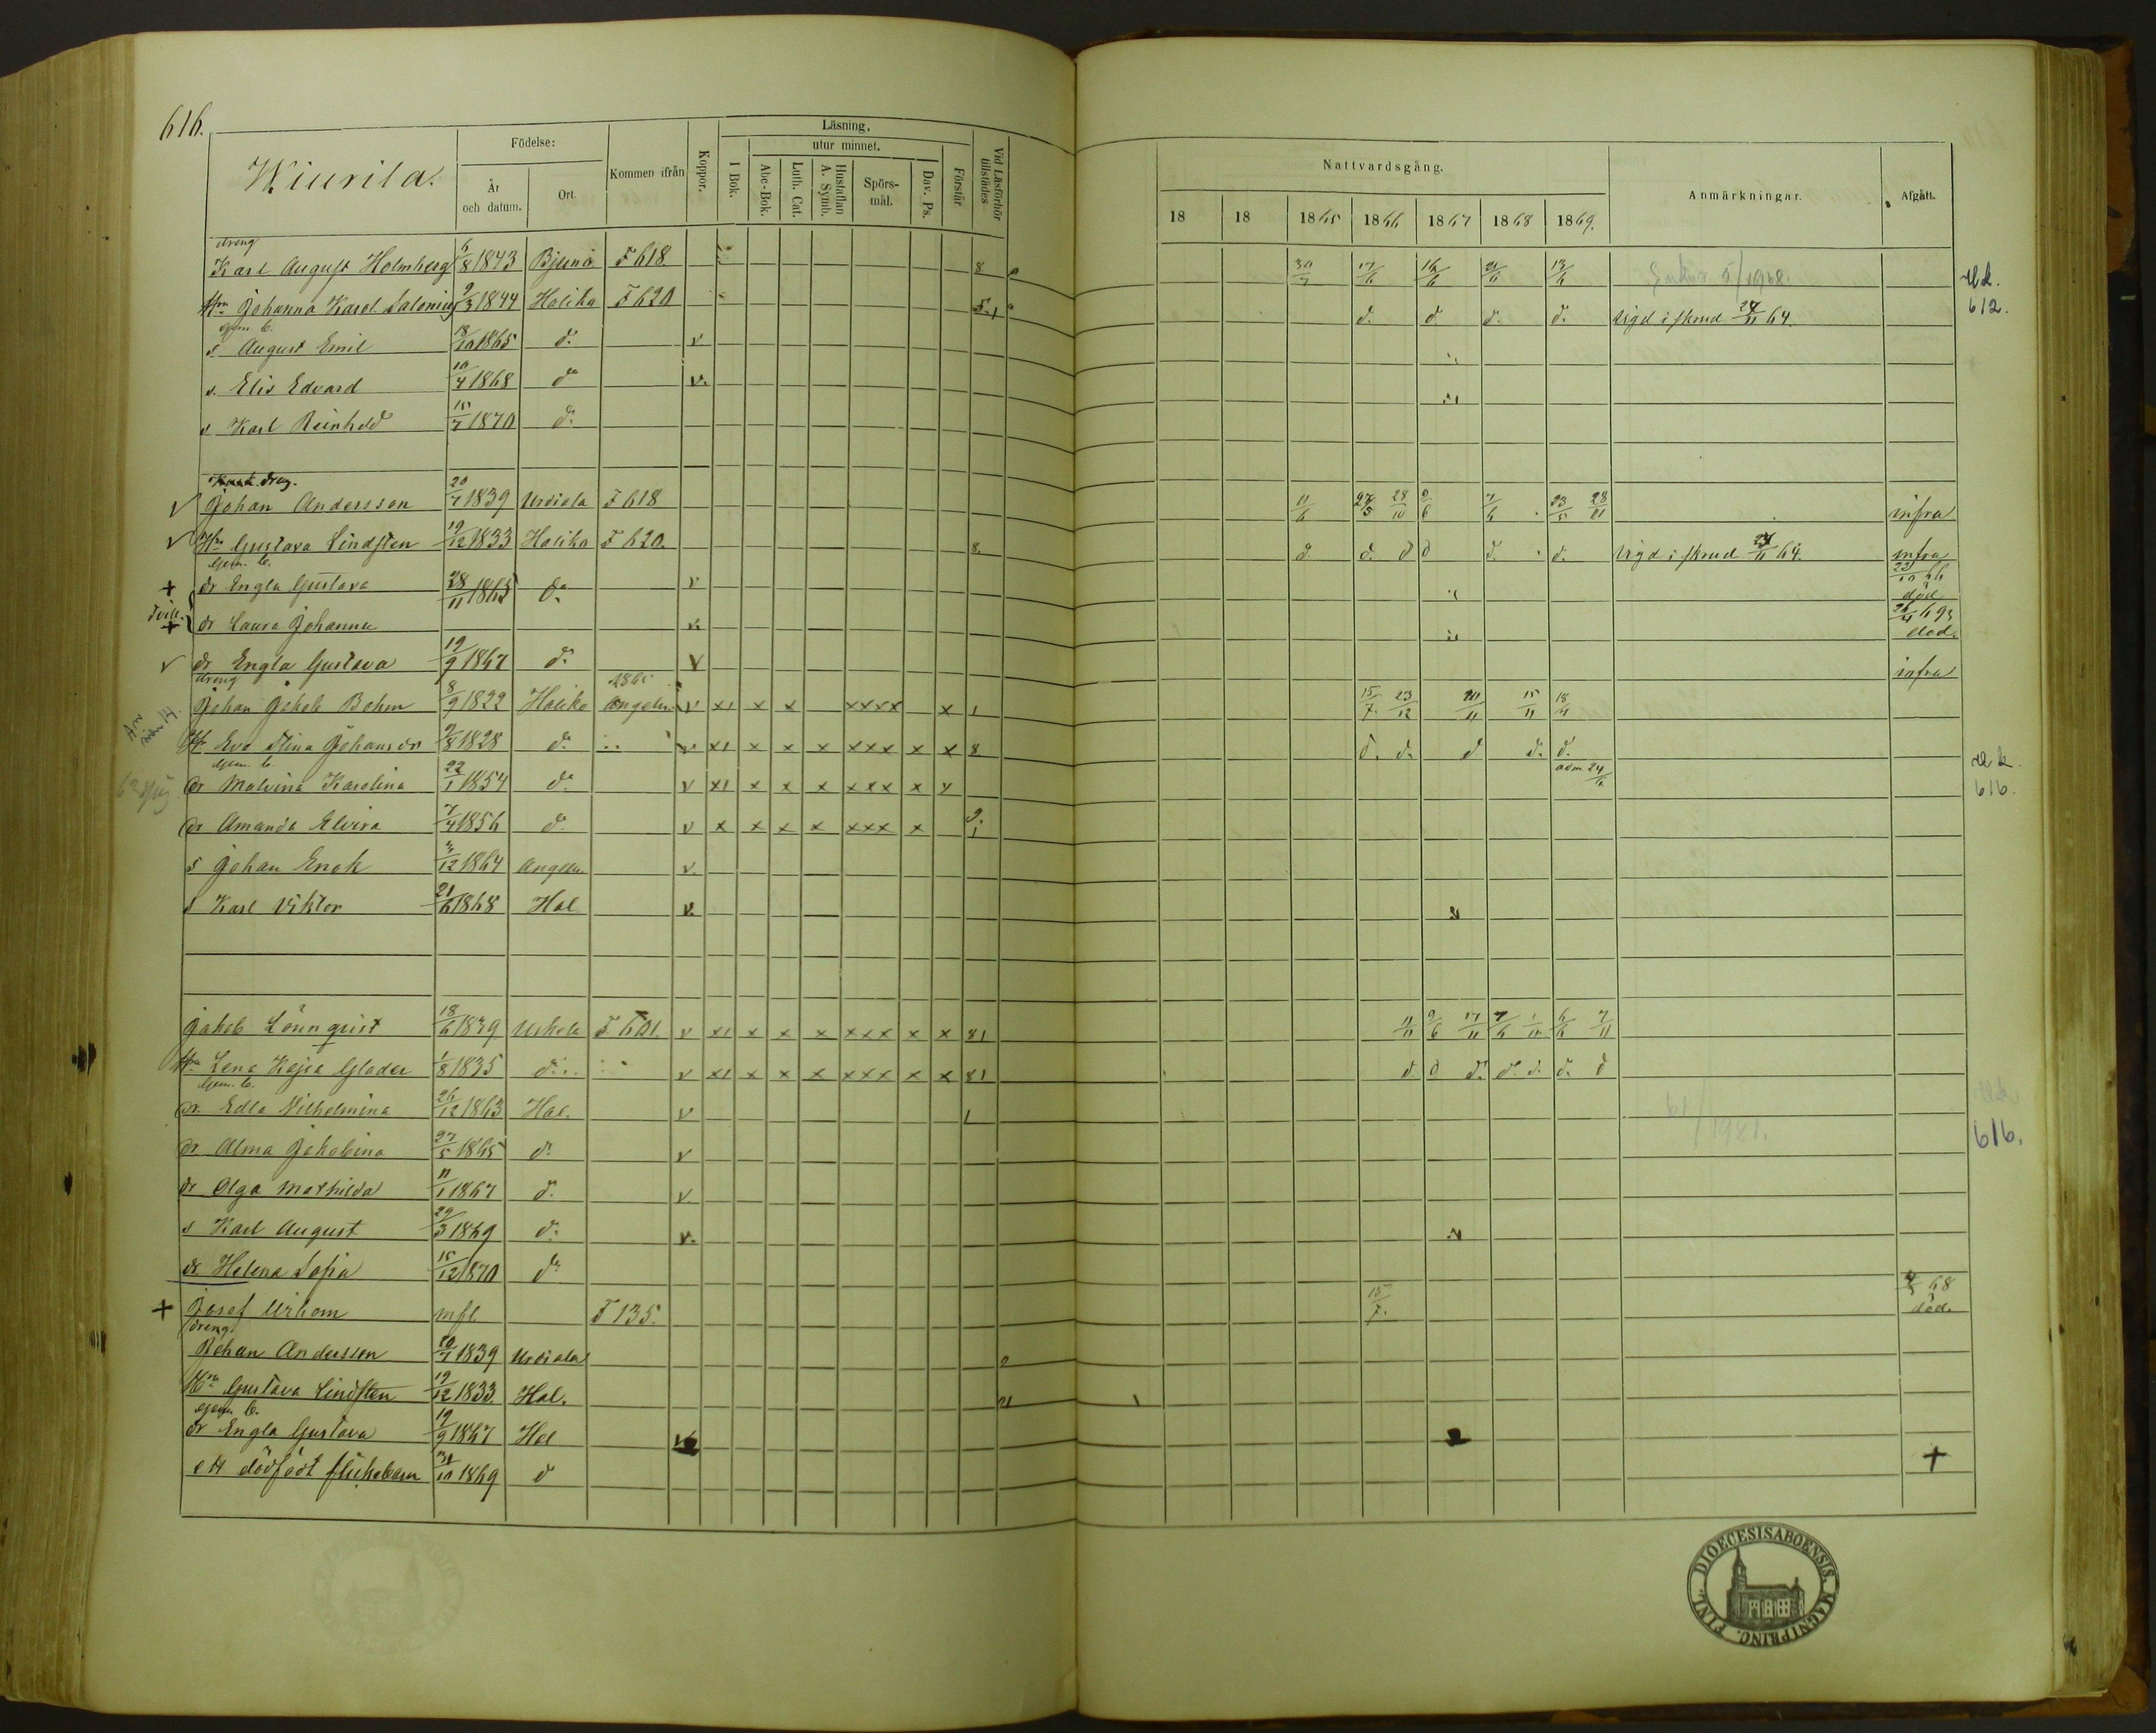 616.
Wiurila.
Födelse:
År och datum.
Ort.
Kommen ifrån
Koppor.
Läsning.
I Bok.
utur minnet.
Abc-Bok.
Luth. Cat.
Hustaflan A. Symb.
Spörsmål.
Dav. Ps.
Förstår
Vid Läsförhör tillstädes
Nattvardsgång.
18 18 1865 1866 1867 1868 1869.
Anmärkningar.
Afgått.
dreng
Karl August Holmberg 6/8 1843 Bjerno F 618 8 30/7 17/6 16/6 13/6
Hru Johanna Karol Salonius 9/3 1844 Haliko F 620 d. d. d. d. Vigd i skrud 24/11 64.
612.
s August Emil 18/10 1865 d. v
s. Elis Edvard 10/4 1868 do v.
s Karl Reinhold 15/7 1870 d.
dreng.
v Johan Andersson 20/7 1839 Urdiala F 618 11/6 27/5 28/10 9/6 7/6 23/5 28/11 infra
v Hru Gustava Lindsten 19/12 1833 Haliko F 620. 8. d. d. d d d. d. Vigd i skrud 24/11 64. infra
+ dr Engla Gustava 28/11 1865 do v 22/10 66 död
+ dr Laura Johanna v. död.
v dr Engla Gustava 19/9 1867 d. v infra
dreng
Johan Jakob Bohm 8/9 1822 Haliko 1865 Angeln. v xi x x xxxx x 1 15/7. 23/12 20/11 15/11 18/4
H Eva Stina Johansdr 2/8 1828 d. v xi x x x xxx x x 8 d. d. d d. d.
dr Malvina Karolina 22/1 1854 do v xi x x x xxx x x adm 24/6
616.
dr Amanda Elvira 7/4 1856 d. v x x x x xxx x 9. 1
s Johan Enok 12 1864 Angeln. v.
s Karl Viktor 21/6 1868 Hal v.
Jakob Lönnqvist 18/6 1839 Uskela F 601. v xi x x x xxx x x 81 11/11 9/6 17/11 7/6 1/11 6/6 7/11
Hru Lena Kajsa Glader 1/8 1835 d. v xi x x x xxx x x 81 d d d. d. d. d. d
dr. Edla Vilhelmina 26/12 1863 Hal. v 1
61/1981.
616.
dr Alma Jakobina 27/5 1865 d. v
dr Olga Mathilda 11/1 1867 d. v
s Karl August 29/3 1869 d. v.
dr Helena Sofia 15/12 1870 do
+ Josef mfl. F 135. 15/7. 68 död.
dreng
Johan Andersson 20/7 1839 Urdiala
Hru Gustava Lindsten 19/12 1833 Hal.
dr Engla Gustava 19/9 1867 Hal
ett dödfödt flickebarn 10 1869 d +
DIOECESIS ABOENSIS. MAGNI PRINC. FINL.